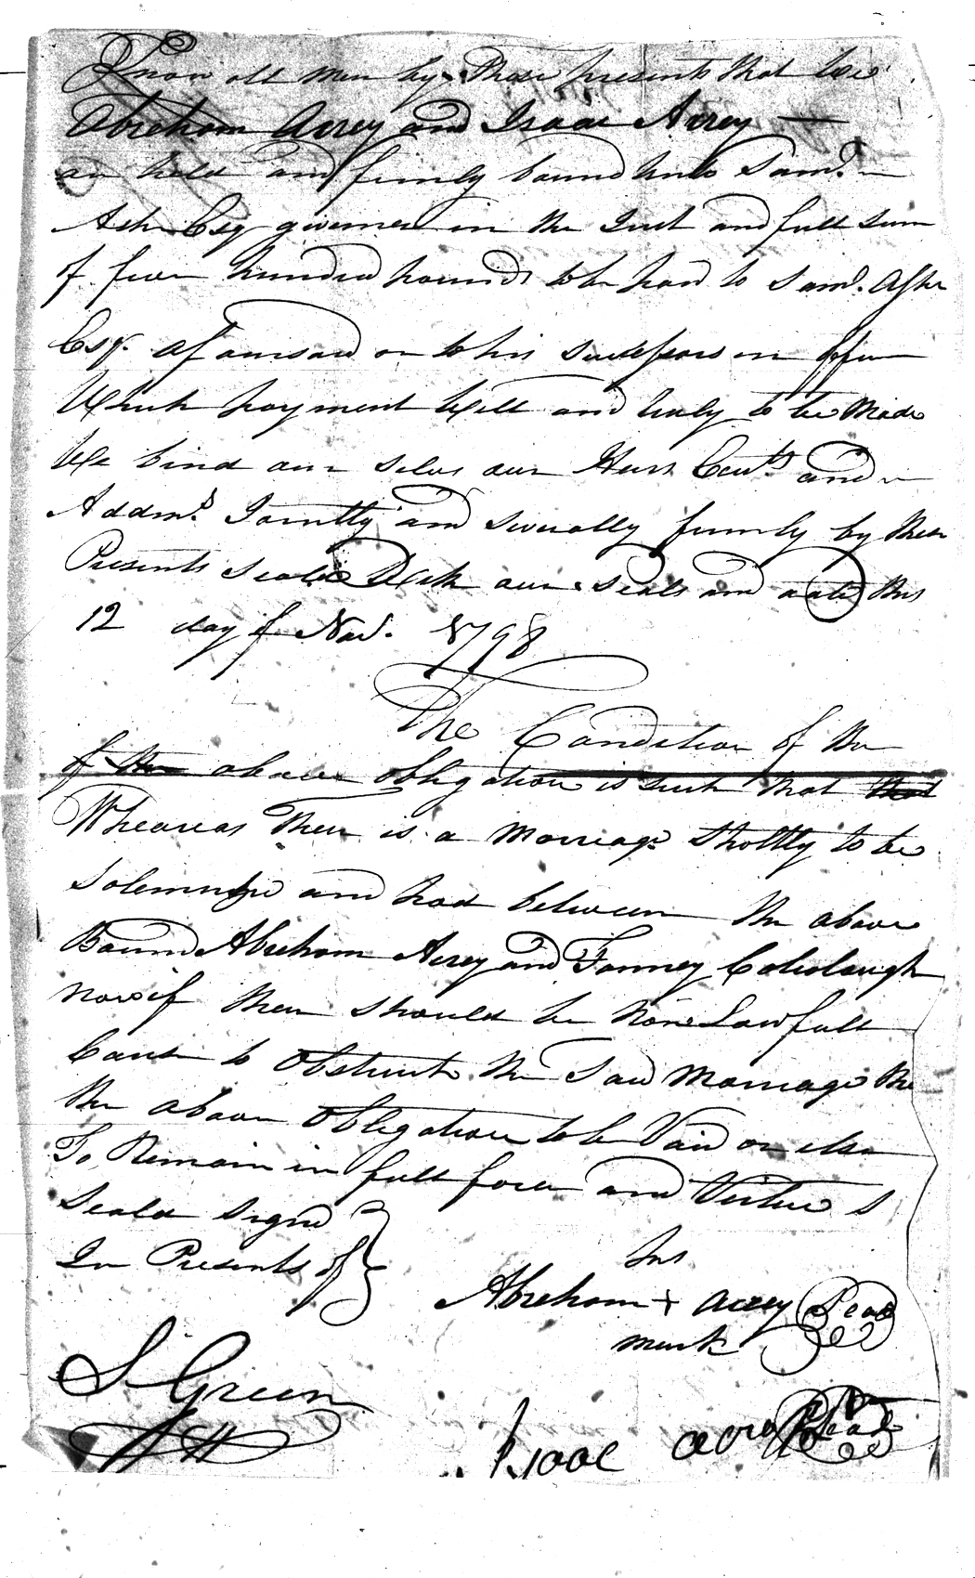 Know all men by These presents that we
Abreham Acrey and Isaac Acrey —
are held and firmly bound unto Sam.l
Ash Esq governer in the Just and full sum
of five hundred pounds to be paid to Sam.l Ashe
Esqr. aforesaid or to his successors in office
Which payment well and truly to be Made
We bind our selves our Heirs Exut.s and
Addm.s Jointly and severally firmly by these
Presents Sealed With our Seals and dated this
12 day of Nov. 1798
The Condition of the
of the above obligation is such that that
Wheareas Their is a Marriage Shottly to be
Solemnized and had between the above
Bound Abreham Acrey and Fanney
now if their should be None Lawfull
Cause to Obstruct the Said Marriage the
the above Obligation to be Void or else
To Remain in full force and Virtue
Seald Signd
In Presents of
his
Abreham + Acrey Seal
mark
S Green
Isaac Seal